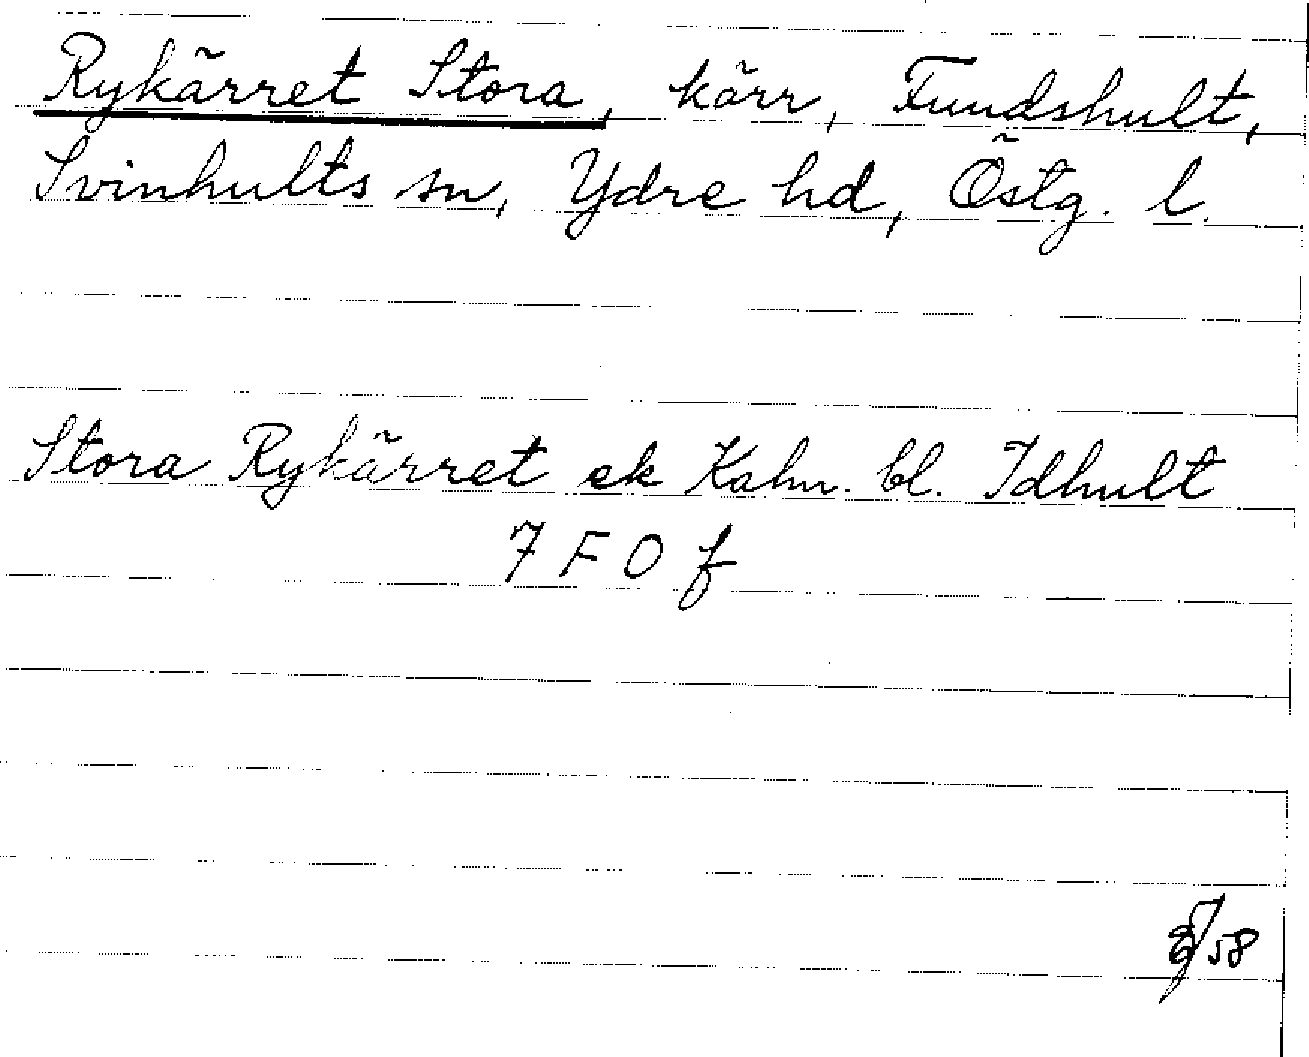 Rykärret Stora, kärr, Fundshult,
Svinhults sn, Ydre hd, Östg. l.
Stora Rykärret ek Kahn. bl. Idhult
7 F 0 f
58